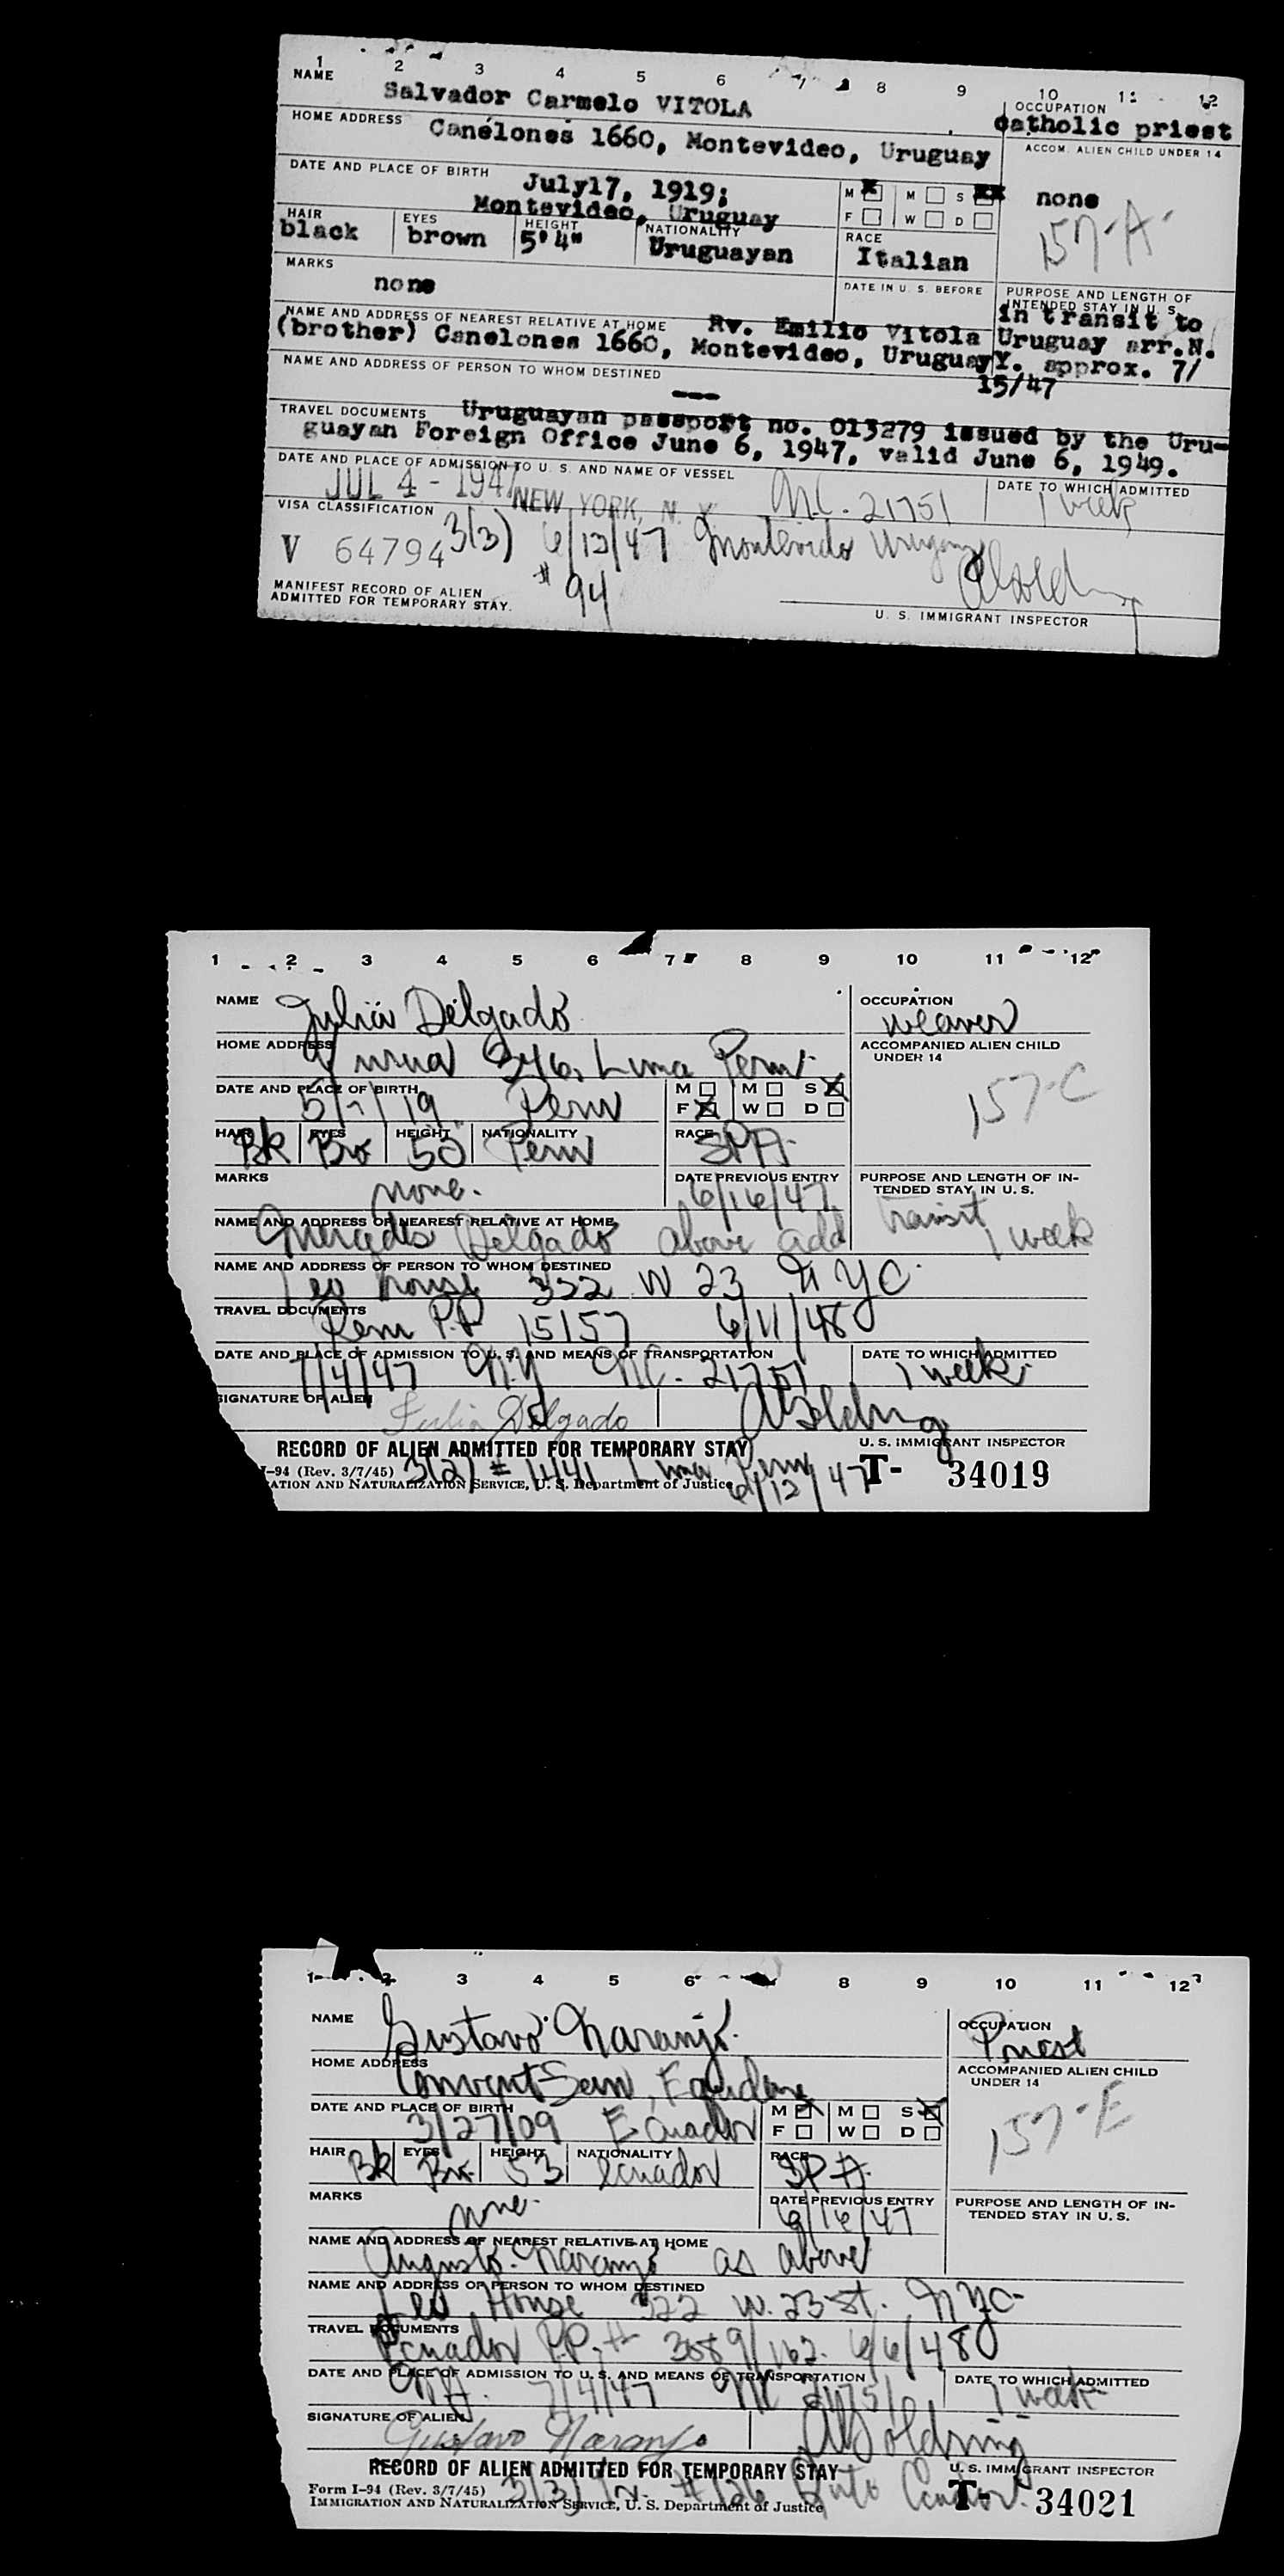 1 2 3 4 5 6 7 8 9 10 11 12
NAME Salvador Carmelo VITOLA
OCCUPATION catholic priest
HOME ADDRESS Canelones 1660, Montevideo, Uruguay
ACCOM. ALIEN CHILD UNDER 14 none
157-A
DATE AND PLACE OF BIRTH July17, 1919;
Montevideo, Uruguay
M F M W S D
HAIR black EYES brown HEIGHT 5'4" NATIONALITY Uruguayan RACE Italian
MARKS none
DATE IN U. S. BEFORE
PURPOSE AND LENGTH OF INTENDED STAY IN U. S.
in transit to
Uruguay arr.N.
Y. approx. 7/
15/47
NAME AND ADDRESS OF NEAREST RELATIVE AT HOME Rv. Emilio Vitola
(brother) Canelones 1660, Montevideo, Uruguay
NAME AND ADDRESS OF PERSON TO WHOM DESTINED ---
TRAVEL DOCUMENTS Uruguayan passport no. 013279 issued by the Uru-
guayan Foreign Office June 6, 1947, valid June 6, 1949.
DATE AND PLACE OF ADMISSION TO U. S. AND NAME OF VESSEL
JUL 4 - 1947 NEW YORK, N. Y. N.C. 21751
DATE TO WHICH ADMITTED 1 week
VISA CLASSIFICATION 3(3) 6/13/47 Montevideo Uruguay
V 64794 # 94
MANIFEST RECORD OF ALIEN
ADMITTED FOR TEMPORARY STAY.
U. S. IMMIGRANT INSPECTOR
1 2 3 4 5 6 7 8 9 10 11 12
NAME Julia Delgado
OCCUPATION weaver
HOME ADDRESS 346, Lima Peru
ACCOMPANIED ALIEN CHILD
UNDER 14
157-C
DATE AND PLACE OF BIRTH 5/7/19 Peru
M F M W S D
HAIR Bk EYES Bro HEIGHT 50 NATIONALITY Peru RACE SPA
MARKS none.
DATE PREVIOUS ENTRY 6/16/47
PURPOSE AND LENGTH OF IN-
TENDED STAY IN U. S.
Transit 1 week
NAME AND ADDRESS OF NEAREST RELATIVE AT HOME
Mercedes Delgado above add
NAME AND ADDRESS OF PERSON TO WHOM DESTINED
Leo House 322 W 23 NYC
TRAVEL DOCUMENTS
Peru P.P 15157 6/11/48
DATE AND PLACE OF ADMISSION TO U. S. AND MEANS OF TRANSPORTATION
7/4/47 N.Y NC. 21751
DATE TO WHICH ADMITTED
1 week
SIGNATURE OF ALIEN Julia Delgado
A Goldring
RECORD OF ALIEN ADMITTED FOR TEMPORARY STAY
U. S. IMMIGRANT INSPECTOR
I-94 (Rev. 3/7/45) 3(2) # 1441 Lima Peru
6/12/47
ATION AND NATURALIZATION SERVICE, U. S. Department of Justice
T- 34019
1 2 3 4 5 6 8 9 10 11 12
NAME Gustavo Naranjo
OCCUPATION Priest
HOME ADDRESS Convent
ACCOMPANIED ALIEN CHILD
UNDER 14
157-E
DATE AND PLACE OF BIRTH 3/27/09 Ecuador
M F M W S D
HAIR Bk EYES Bro HEIGHT 53 NATIONALITY Ecuador RACE SPA
MARKS none
DATE PREVIOUS ENTRY 6/16/47
PURPOSE AND LENGTH OF IN-
TENDED STAY IN U. S.
NAME AND ADDRESS OF NEAREST RELATIVE AT HOME
Augusto Naranjo as above
NAME AND ADDRESS OF PERSON TO WHOM DESTINED
Leo House 322 W. 23 St. NYC
TRAVEL DOCUMENTS
Ecuador P.P. # 3589/162 6/6/48
DATE AND PLACE OF ADMISSION TO U. S. AND MEANS OF TRANSPORTATION
N.Y. 7/4/47 NC 21751
DATE TO WHICH ADMITTED
1 week
SIGNATURE OF ALIEN Gustavo Naranjo
A Goldring
RECORD OF ALIEN ADMITTED FOR TEMPORARY STAY
U. S. IMMIGRANT INSPECTOR
Form I-94 (Rev. 3/7/45) 3(3) # 126 Quito Ecuador
IMMIGRATION AND NATURALIZATION SERVICE, U. S. Department of Justice
T- 34021